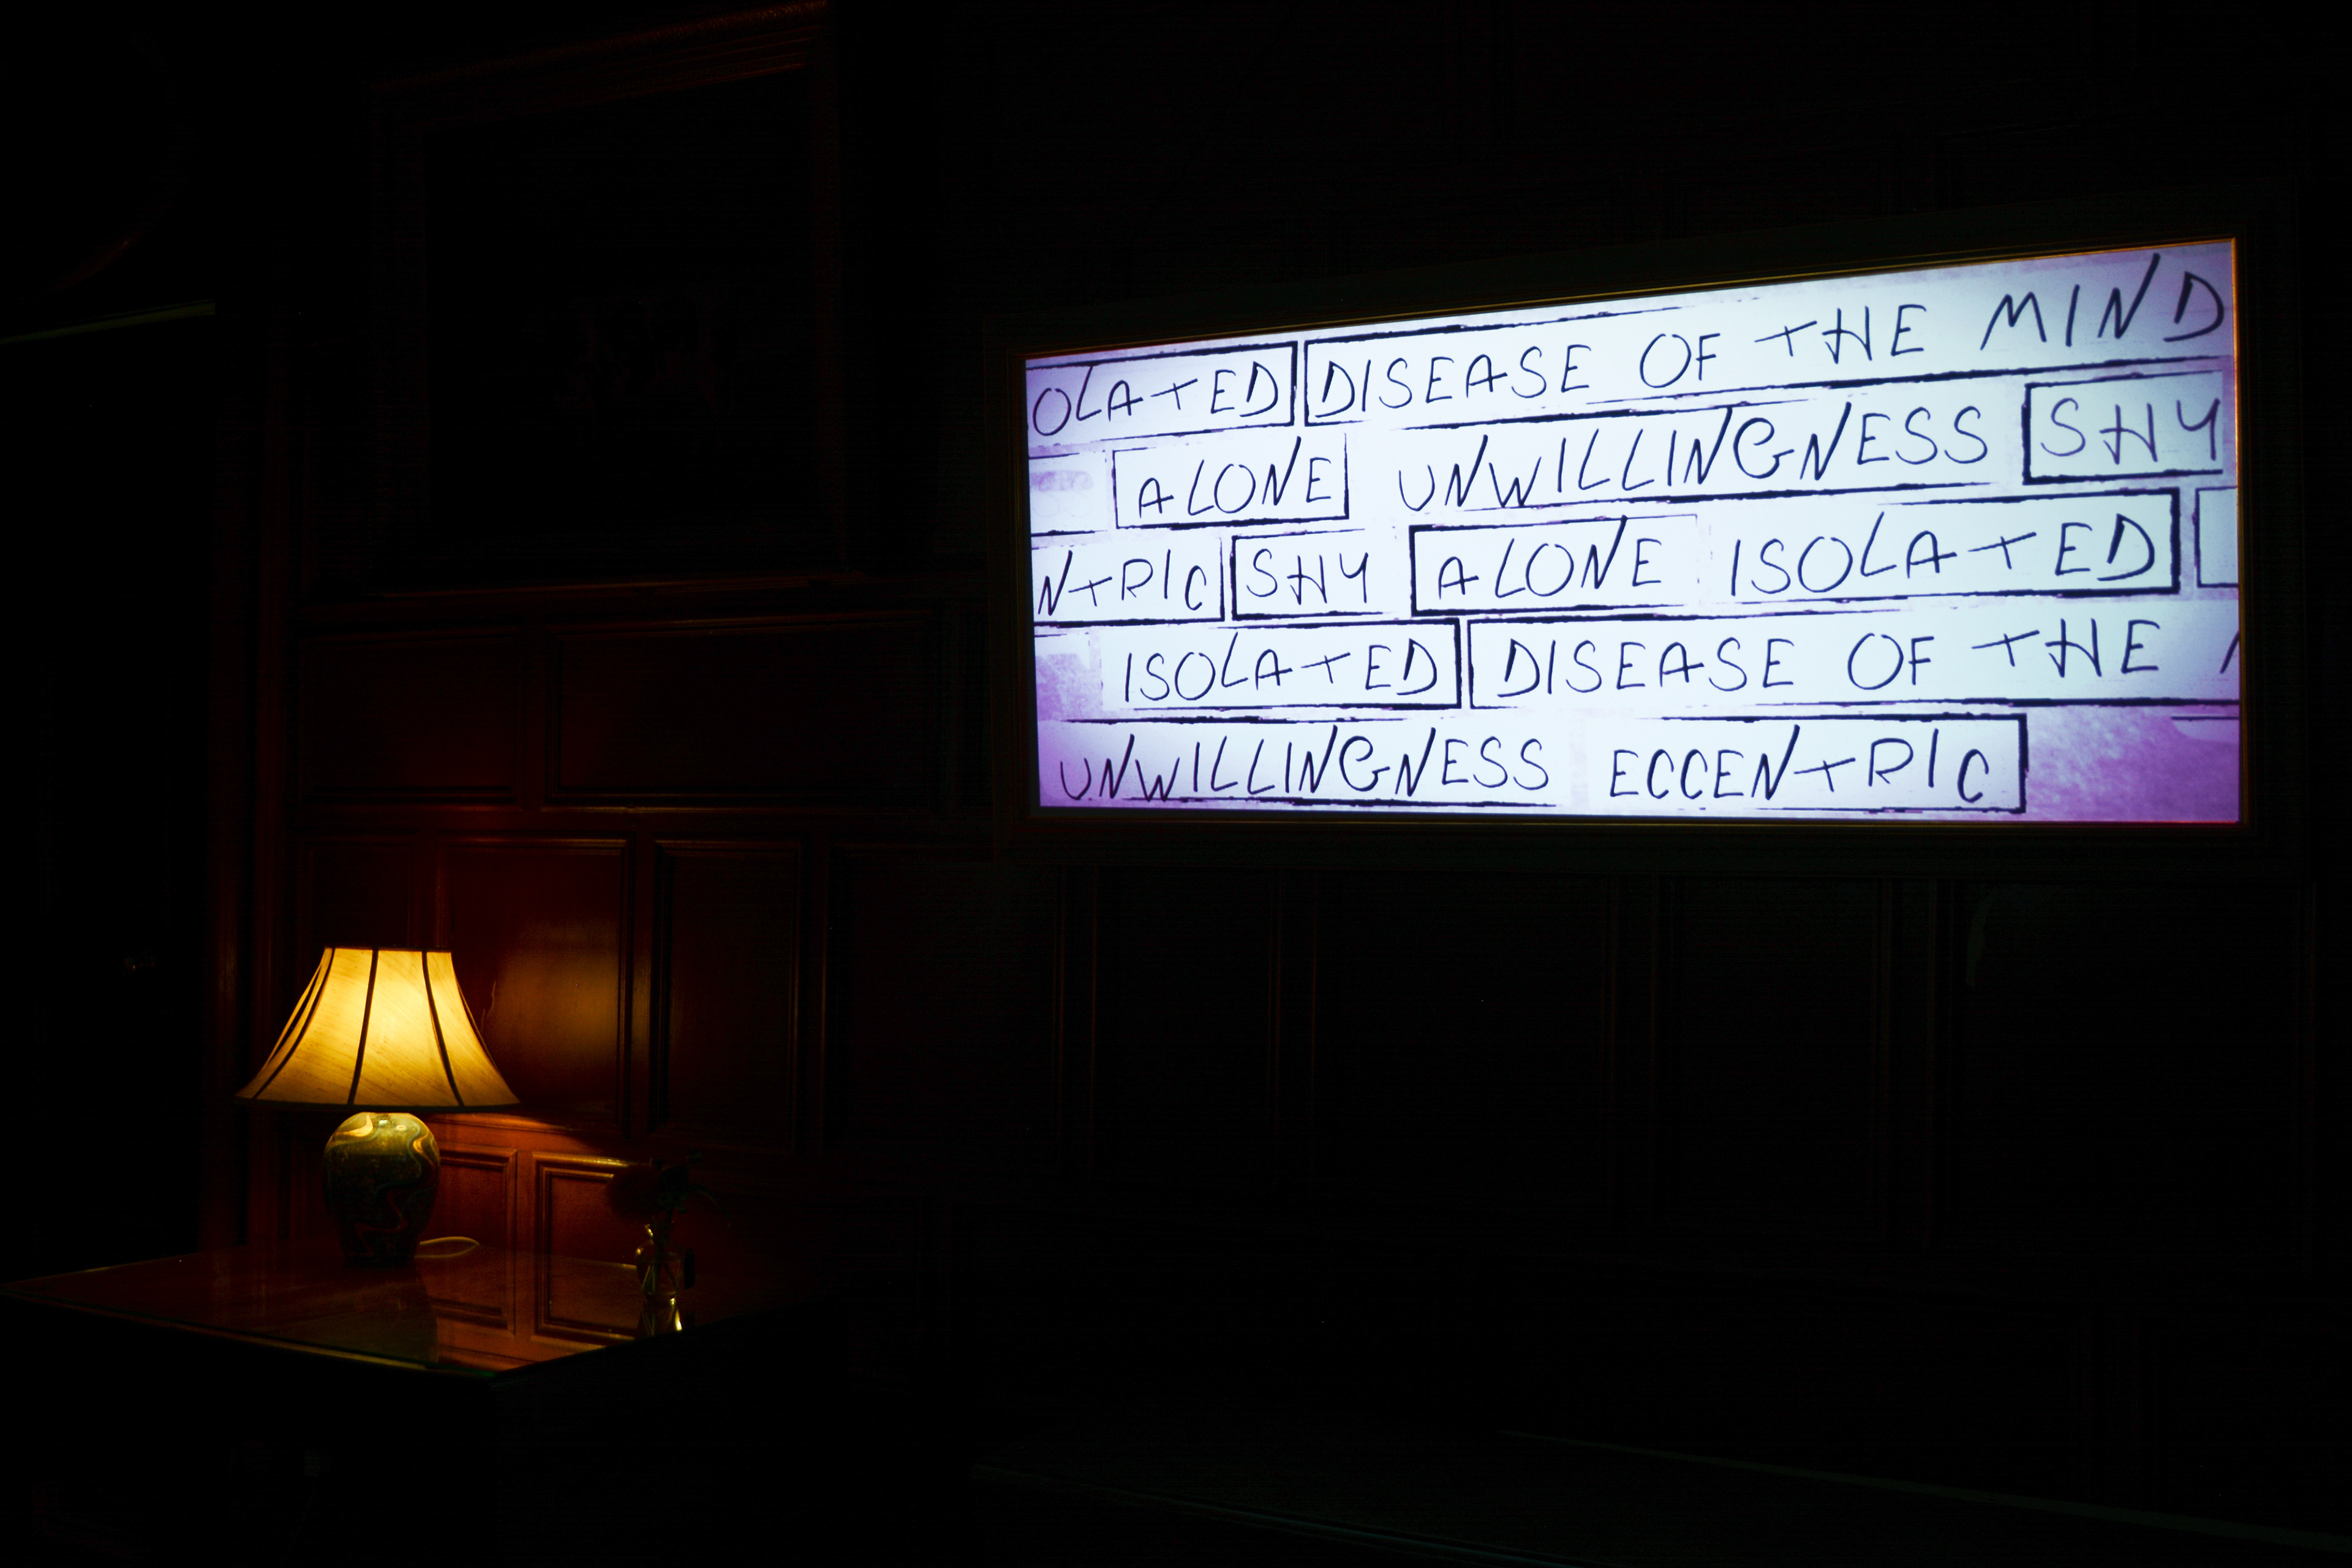 OLATED DISEASE OF THE MIND
ALONE UNWILLINGNESS SHY
NTRIC SHY ALONE ISOLATED
ISOLATED DISEASE OF THE
UNWILLINGNESS ECCENTRIC